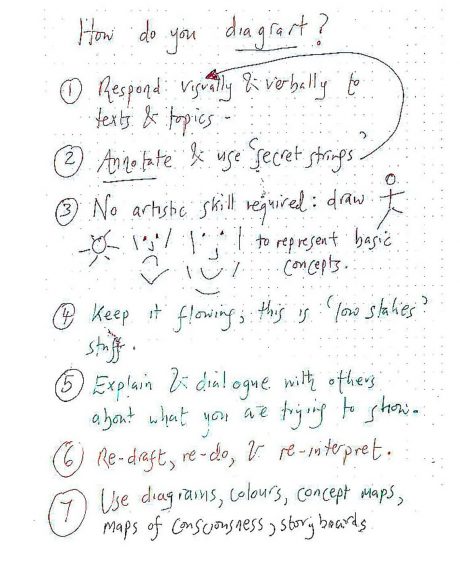 How do you diagrart?
① Respond visually & verbally to
texts & topics -
② Annotate & use 'secret strings'
③ No artistic skill required: draw
to represent basic
concepts.
④ Keep it flowing; this is 'low stakes'
stuff.
⑤ Explain & dialogue with others
about what you are trying to show.
⑥ Re-draft, re-do, & re-interpret.
⑦ Use diagrams, colours, concept maps,
maps of consciousness, story boards